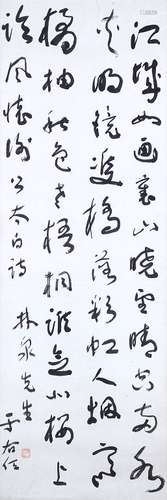 江城如畫裏山曉望晴空兩水
夾明鏡雙橋落彩虹人烟寒
橘柚秋色老梧桐誰念北樓上
臨風懷謝公 太白詩
林泉先生
于右任